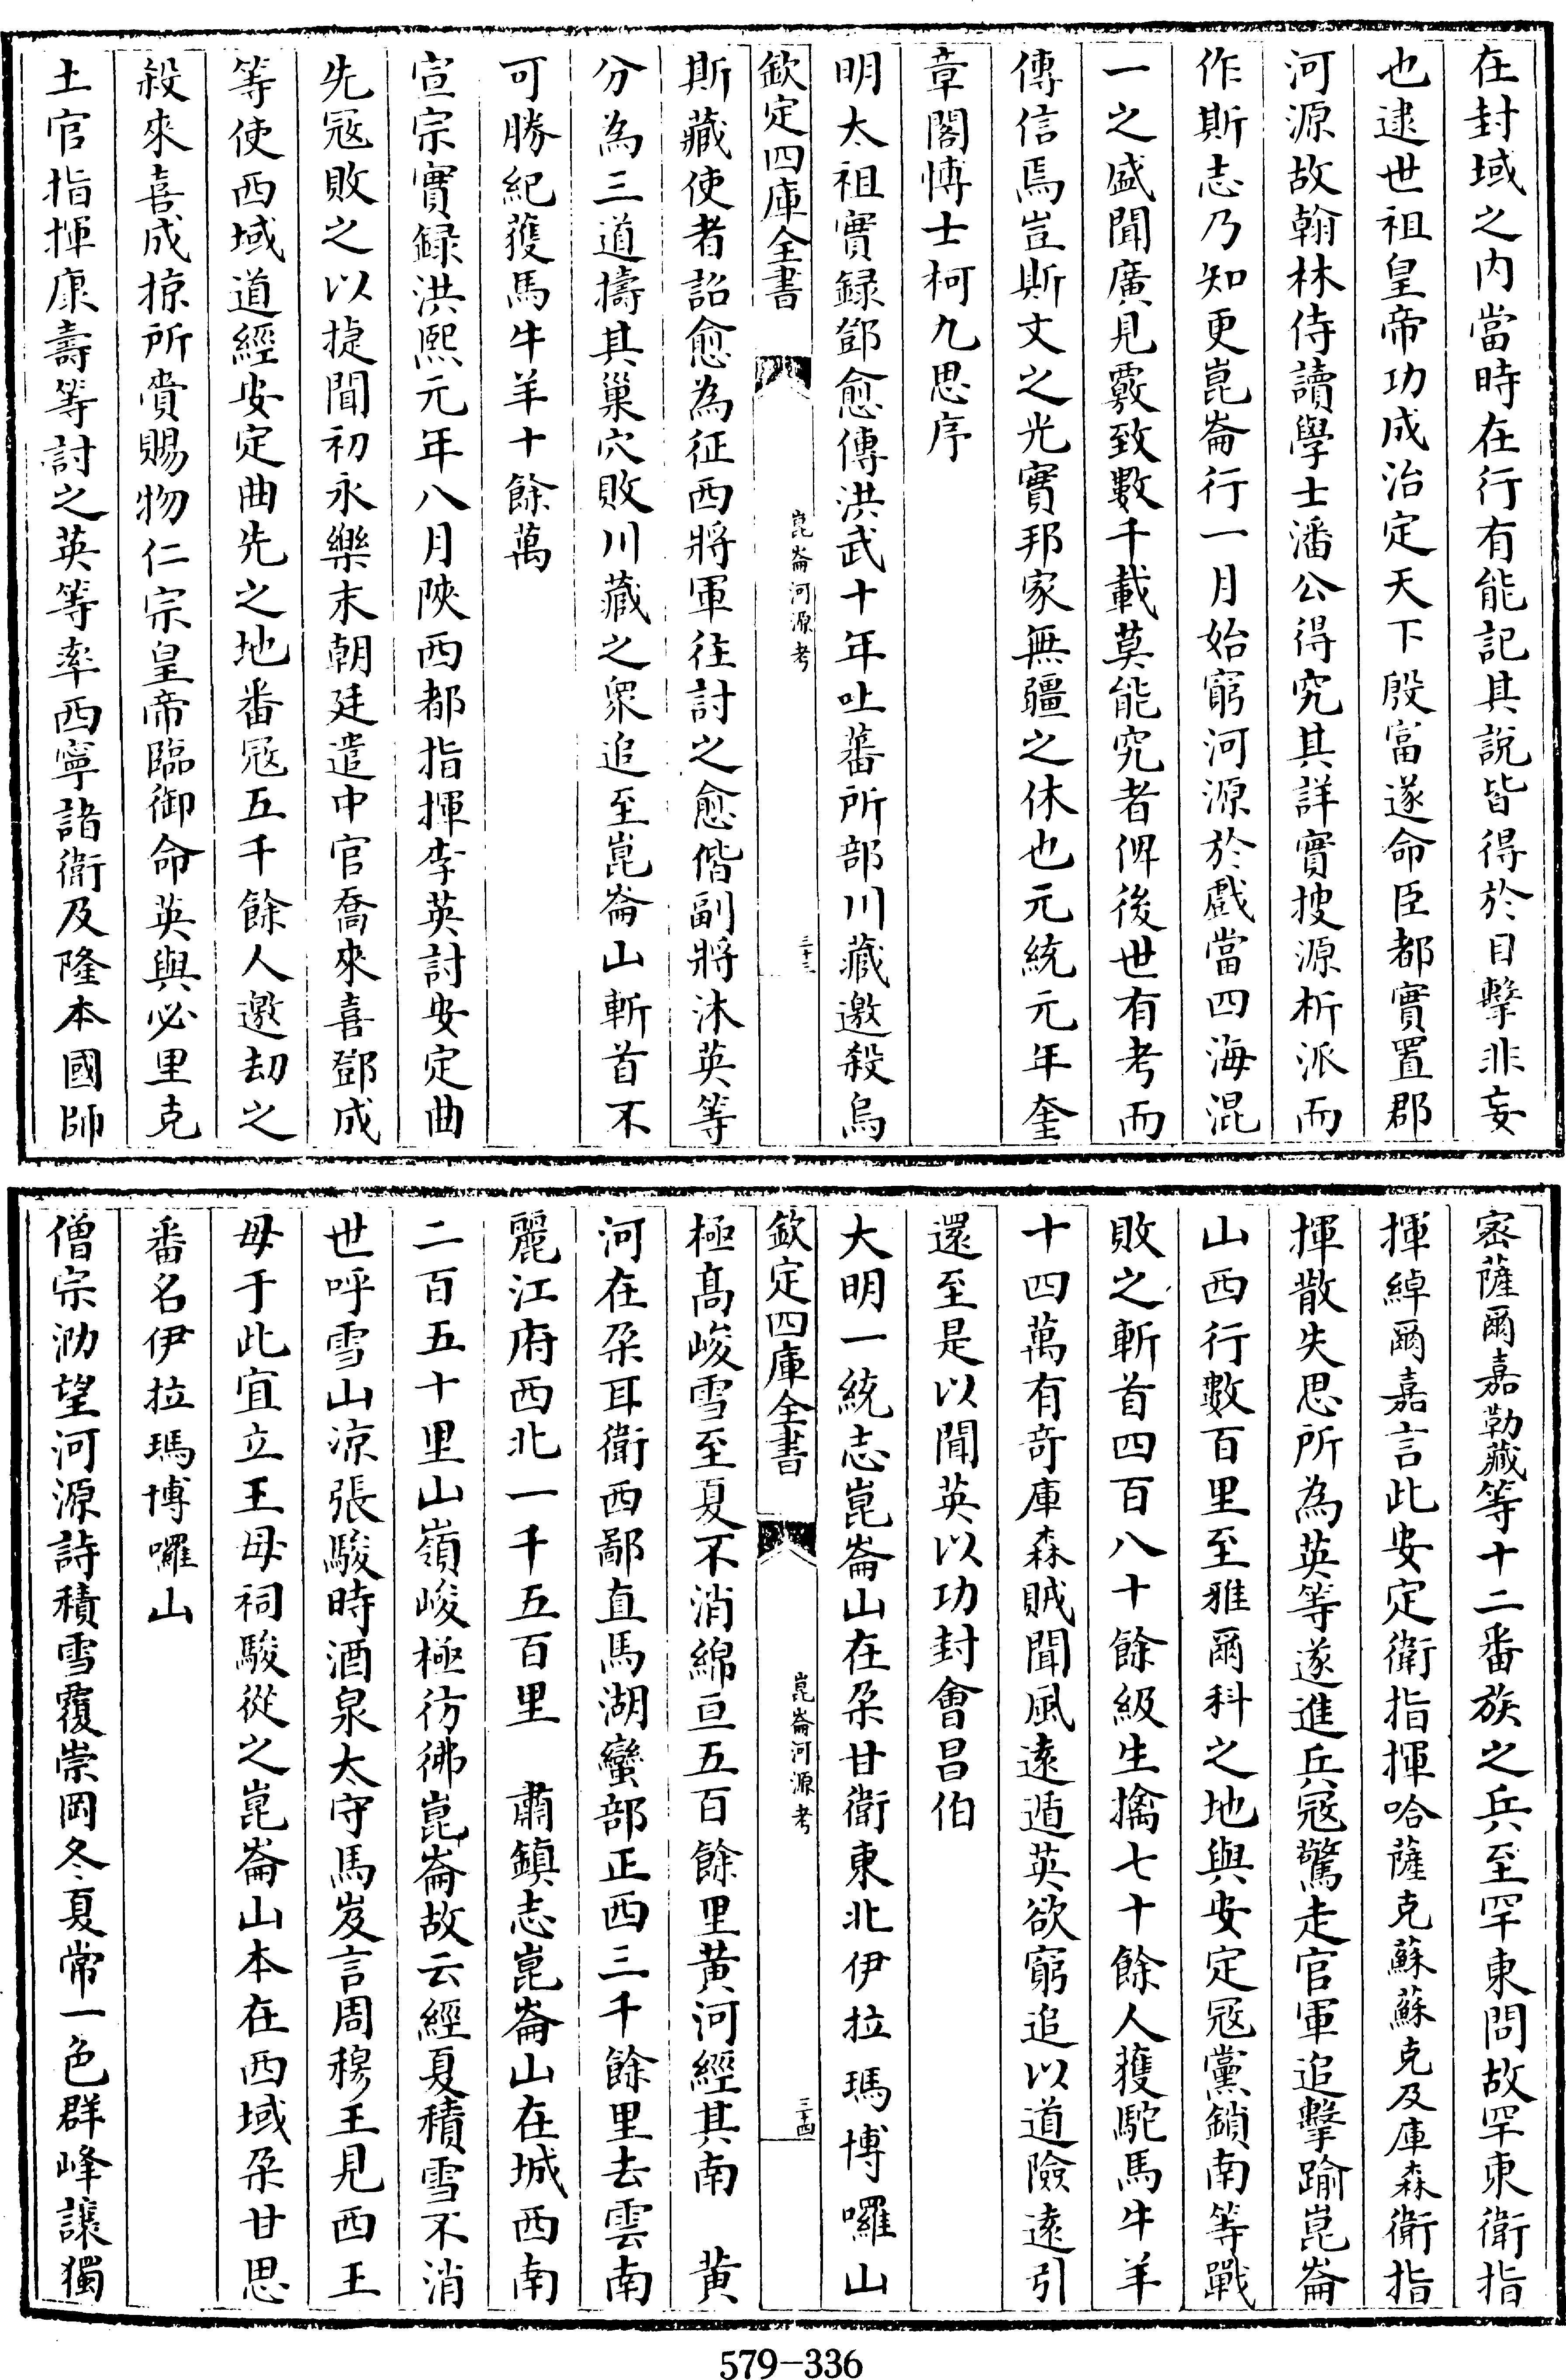 在封域之内當時在行有能記其說皆得於目擊非妄
也逮世祖皇帝功成治定天下殷富遂命臣都實置郡
河源故翰林侍讀學士潘公得究其詳實搜源析派而
作斯志乃知更崑崙行一月始窮河源於戲當四海混
一之盛聞廣見覈致數千載莫能究者俾後世有考而
傳信焉豈斯文之光實邦家無疆之休也元統元年奎
章閣博士柯九思序
明太祖實録鄧愈傳洪武十年吐蕃所部川藏邀殺烏
欽定四庫全書 崑崙河源考 三十三
斯藏使者詔愈為征西將軍往討之愈偕副將沐英等
分為三道擣其巢穴敗川藏之衆追至崑崙山斬首不
可勝紀獲馬牛羊十餘萬
宣宗實録洪熙元年八月陜西都指揮李英討安定曲
先冦敗之以捷聞初永樂末朝廷遣中官喬來喜鄧成
等使西域道經安定曲先之地番冦五千餘人邀劫之
殺來喜成掠所賫賜物仁宗皇帝臨御命英與必里克
土官指揮康壽等討之英等率西寧諸衛及隆本國師
宻薩爾嘉勒藏等十二番族之兵至罕東問故罕東衛指
揮綽爾嘉言此安定衛指揮哈薩克蘇蘇克及庫森衛指
揮散失思所為英等遂進兵冦驚走官軍追擊踰崑崙
山西行數百里至雅爾科之地與安定冦黨鎖南等戰
敗之斬首四百八十餘級生擒七十餘人獲駝馬牛羊
十四萬有奇庫森賊聞風逺遁英欲窮追以道險逺引
還至是以聞英以功封會昌伯
大明一統志崑崙山在朶甘衛東北伊拉瑪博囉山
欽定四庫全書 崑崙河源考 三十四
極髙峻雪至夏不消綿亘五百餘里黄河經其南 黄
河在朶耳衛西鄙直馬湖蠻部正西三千餘里去雲南
麗江府西北一千五百里 肅鎮志崑崙山在城西南
二百五十里山嶺峻極彷彿崑崙故云經夏積雪不消
世呼雪山凉張駿時酒泉太守馬岌言周穆王見西王
毋于此宜立王毋祠駿從之崑崙山本在西域朶甘思
番名伊拉瑪博囉山
僧宗泐望河源詩積雪覆崇岡冬夏常一色群峰讓獨
579-336